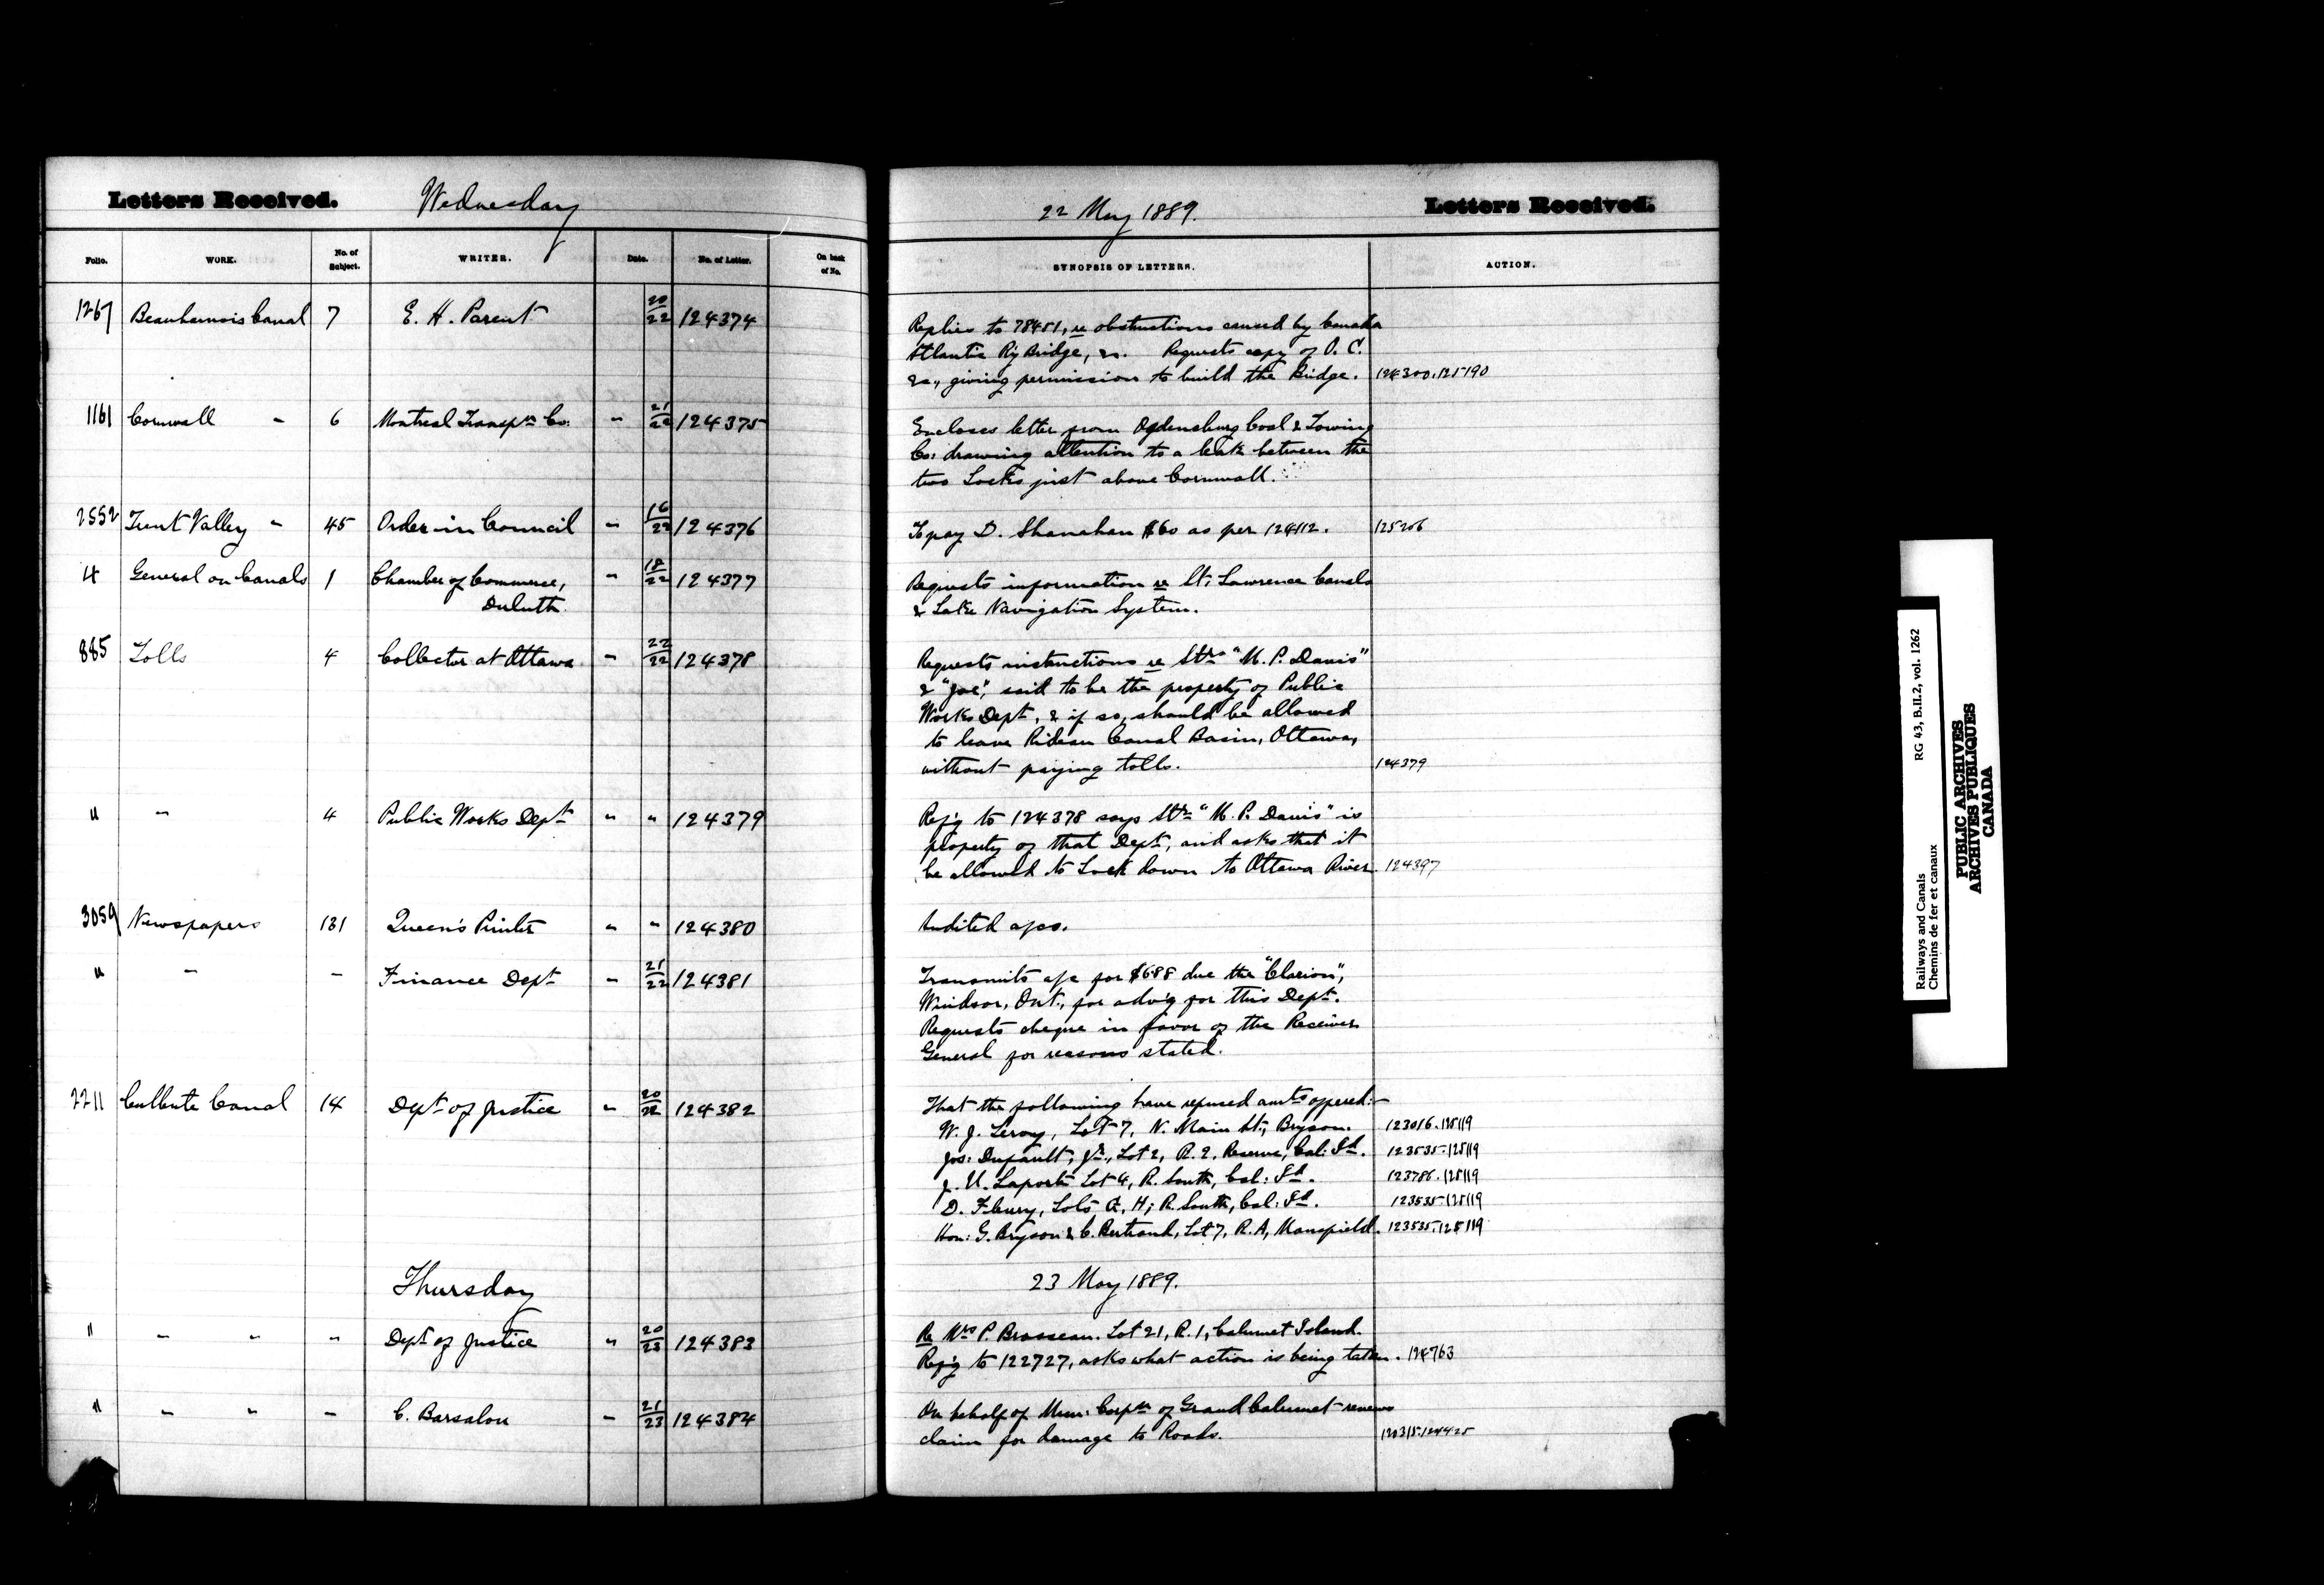 Letters Received. Wednesday
22 May 1889. Letters Received.
Folio. WORK. No. of Subject. WRITER. Date. No. of Letter. On back of No. SYNOPSIS OF LETTERS. ACTION.
1267 Beauharnois Canal 7 E. H. Parent 20/22 124374
Replies to 78451, re obstructions caused by Canada
Atlantic Ry Bridge, &c. Requests copy of O. C.
&c., giving permission to build the Bridge. 124300.125190
1161 Cornwall " 6 Montreal Transpn Co. " 21/22 124375
Encloses letter from Ogdensburg Coal & Towing
Co: drawing attention to a leak between the
two Locks just above Cornwall.
2552 Trent Valley " 45 Order in Council " 16/22 124376
To pay D. Shanahan $60 as per 124112. 125206
4 General on Canals 1 Chamber of Commerce, " 18/22 124377
Duluth.
Requests information re St. Lawrence Canals
& Lake Navigation System.
885 Tolls 4 Collector at Ottawa " 22/22 124378
Requests instructions re Strs "M. P. Davis"
& "Joe", said to be the property of Public
Works Dept, & if so, should be allowed
to leave Rideau Canal Basin, Ottawa,
without paying tolls. 124379
" " 4 Public Works Dept " " 124379
Refg to 124378 says Str "M. P. Davis" is
property of that Dept, and asks that it
be allowed to Lock down to Ottawa River. 124397
3059 Newspapers 131 Queen's Printer " " 124380
Audited a/cs.
" " " Finance Dept " 21/22 124381
Transmits a/c for $688 due the "Clarion",
Windsor, Ont., for advg for this Dept.
Requests cheque in favor of the Receiver
General for reasons stated.
2211 Culbute Canal 14 Dept of Justice " 20/22 124382
That the following have refused amts offered:-
W. J. Leroy, Lot 7, N. Main St., Bryson. 123016.125119
Jos: Dufault, Jr., Lot 2, R. 2, Reserve, Cal: Id. 123535.125119
J. U. Laporte Lot 4, R. South, Cal: Id. 123786.125119
D. Fleury, Lots G, H, R. South, Cal: Id. 123535.125119
Hon: G. Bryson & C. Bertrand, Lot 7, R. A, Mansfield. 123535.125119
Thursday 23 May 1889.
" " " " Dept of Justice " 20/23 124383
Re Mrs P. Brosseau. Lot 21, R. 1, Calumet Island.
Refg to 122727, asks what action is being taken. 124763
" " " " C. Barsalou " 21/23 124384
On behalf of Mun: Corpn of Grand Calumet renews
claim for damage to Roads. 120315.124425
Railways and Canals RG 43, B.II.2, vol. 1262
Chemins de fer et canaux
PUBLIC ARCHIVES
ARCHIVES PUBLIQUES
CANADA